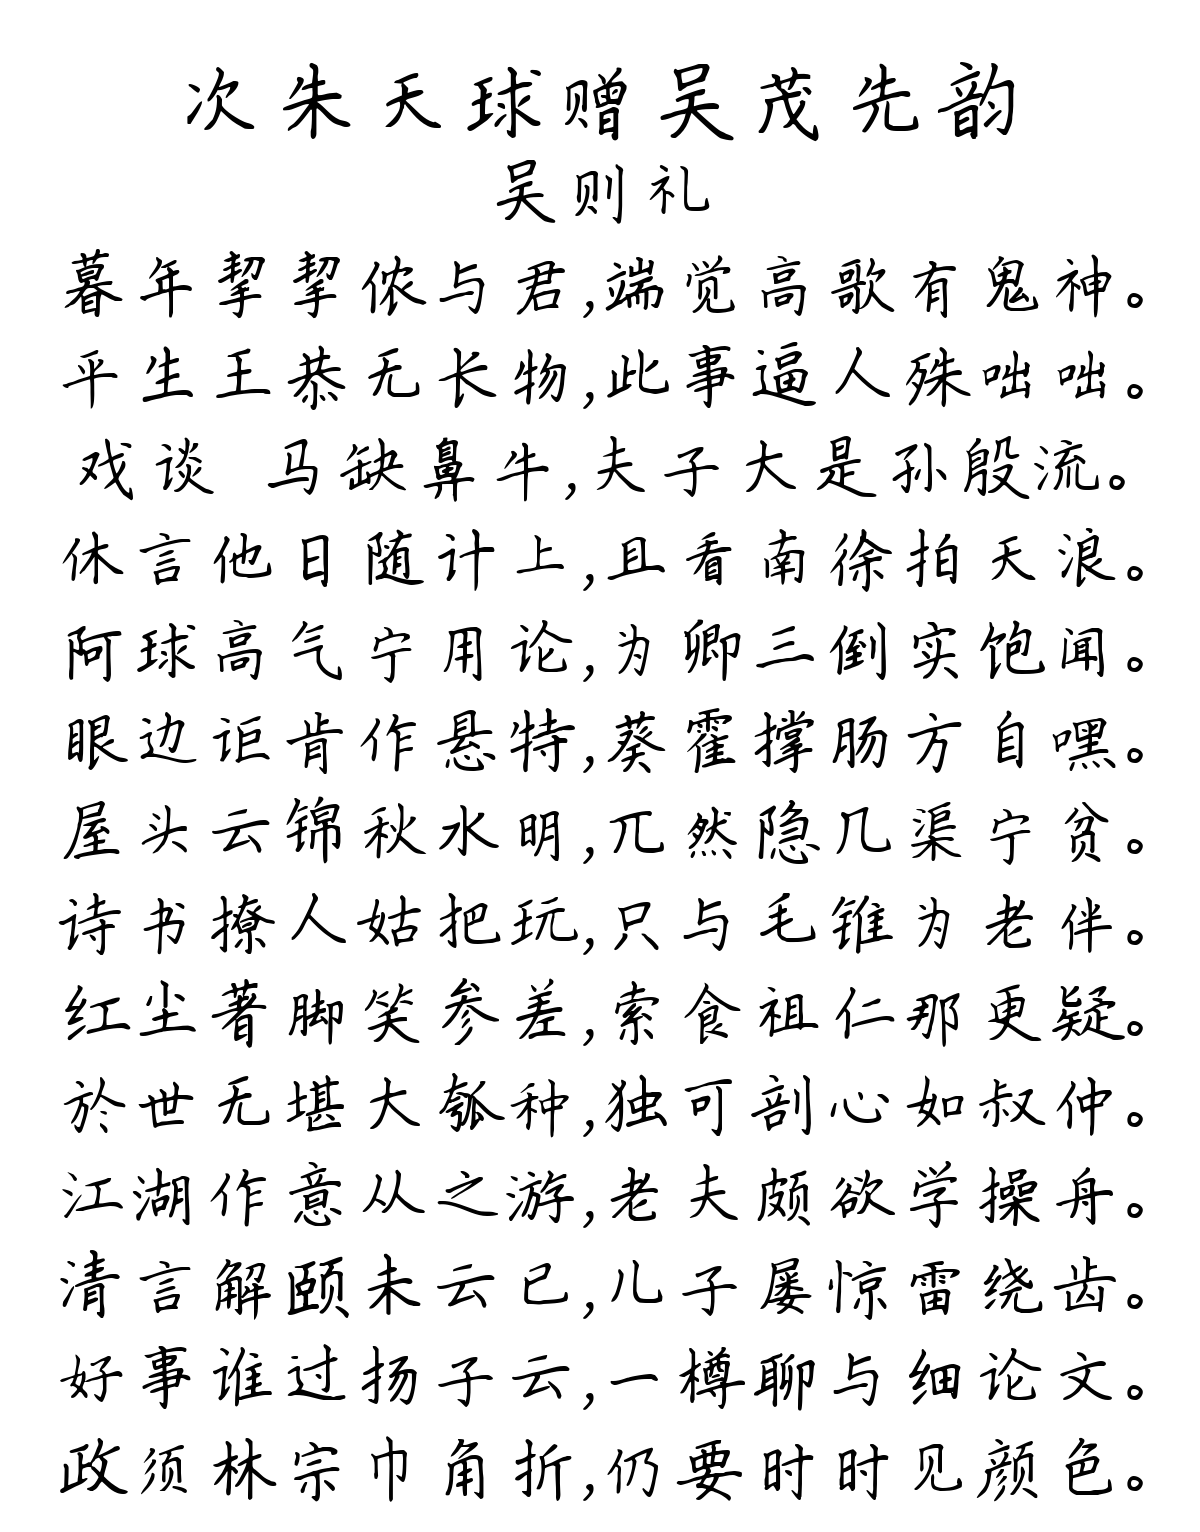 次朱天球赠吴茂先韵
吴则礼
暮年挈挈侬与君,端觉高歌有鬼神。
平生王恭无长物,此事逼人殊咄咄。
戏谈 马缺鼻牛,夫子大是孙殷流。
休言他日随计上,且看南徐拍天浪。
阿球高气宁用论,为卿三倒实饱闻。
眼边讵肯作悬特,葵霍撑肠方自嘿。
屋头云锦秋水明,兀然隐几渠宁贫。
诗书撩人姑把玩,只与毛锥为老伴。
红尘著脚笑参差,索食祖仁那更疑。
於世无堪大瓠种,独可剖心如叔仲。
江湖作意从之游,老夫颇欲学操舟。
清言解颐未云已,儿子屡惊雷绕齿。
好事谁过扬子云,一樽聊与细论文。
政须林宗巾角折,仍要时时见颜色。